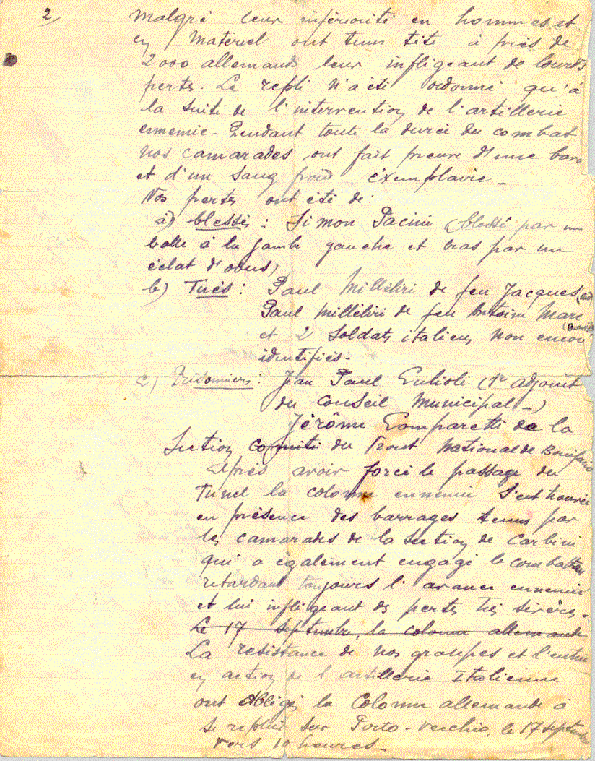 2,
malgré leur infériorité en hommes et
en matériel ont tenu tête à près de
2000 allemands leur infligeant de lourdes
pertes. Le repli n'a été ordonné qu'à
la suite de l'intervention de l'artillerie
ennemie. Pendant toute la durée du combat
nos camarades ont fait preuve d'une
et d'un sang froid exemplaire_
Nos pertes ont été de
a) blessés : Simon Pacini (blessé par une
balle à la jambe gauche et bras par un
éclat d'obus)
b) Tués : Paul Milleliri de feu Jacques
Paul Milleliri de feu Antoine Marc
et 2 soldats italiens non encore
identifiés.
c) Prisonniers : Jean Paul (1er adjoint
du Conseil Municipal_)
Jérôme Comparetti de la
Section Comité du Front National de Bonifacio
Après avoir forcé le passage du
Tunel la colonne ennemie s'est trouvée
en présence des barrages tenus par
les camarades de la Section de Carbini
qui a également engagé le combat
retardant toujours l'avance ennemie
et lui infligeant des pertes très sévères_
Le 17 septembre, la colonne allemande
La résistance de nos groupes et l'entrée
en action de l'artillerie Italienne
ont obligé la colonne allemande à
se replier sur Porto-Vecchio, le 17 septembre
vers 10 heures_